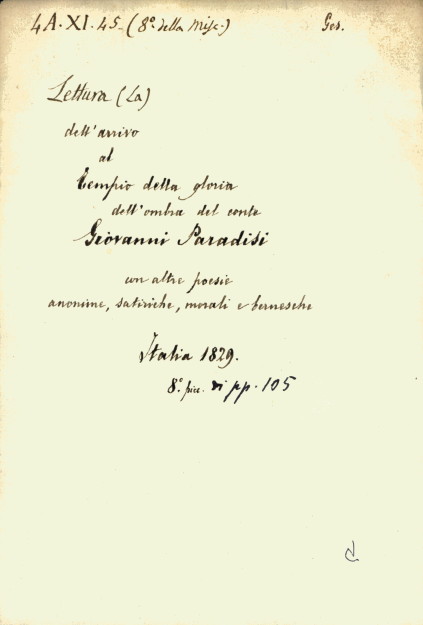 4A.XI.45 (8º della Misc.) Ges.
Lettura (La)
dell'arrivo
al
tempio della gloria
dell'ombra del conte
Giovanni Paradisi
con altre poesie
anonime, satiriche, morali e bernesche
Italia 1829.
8º picc. di pp. 105